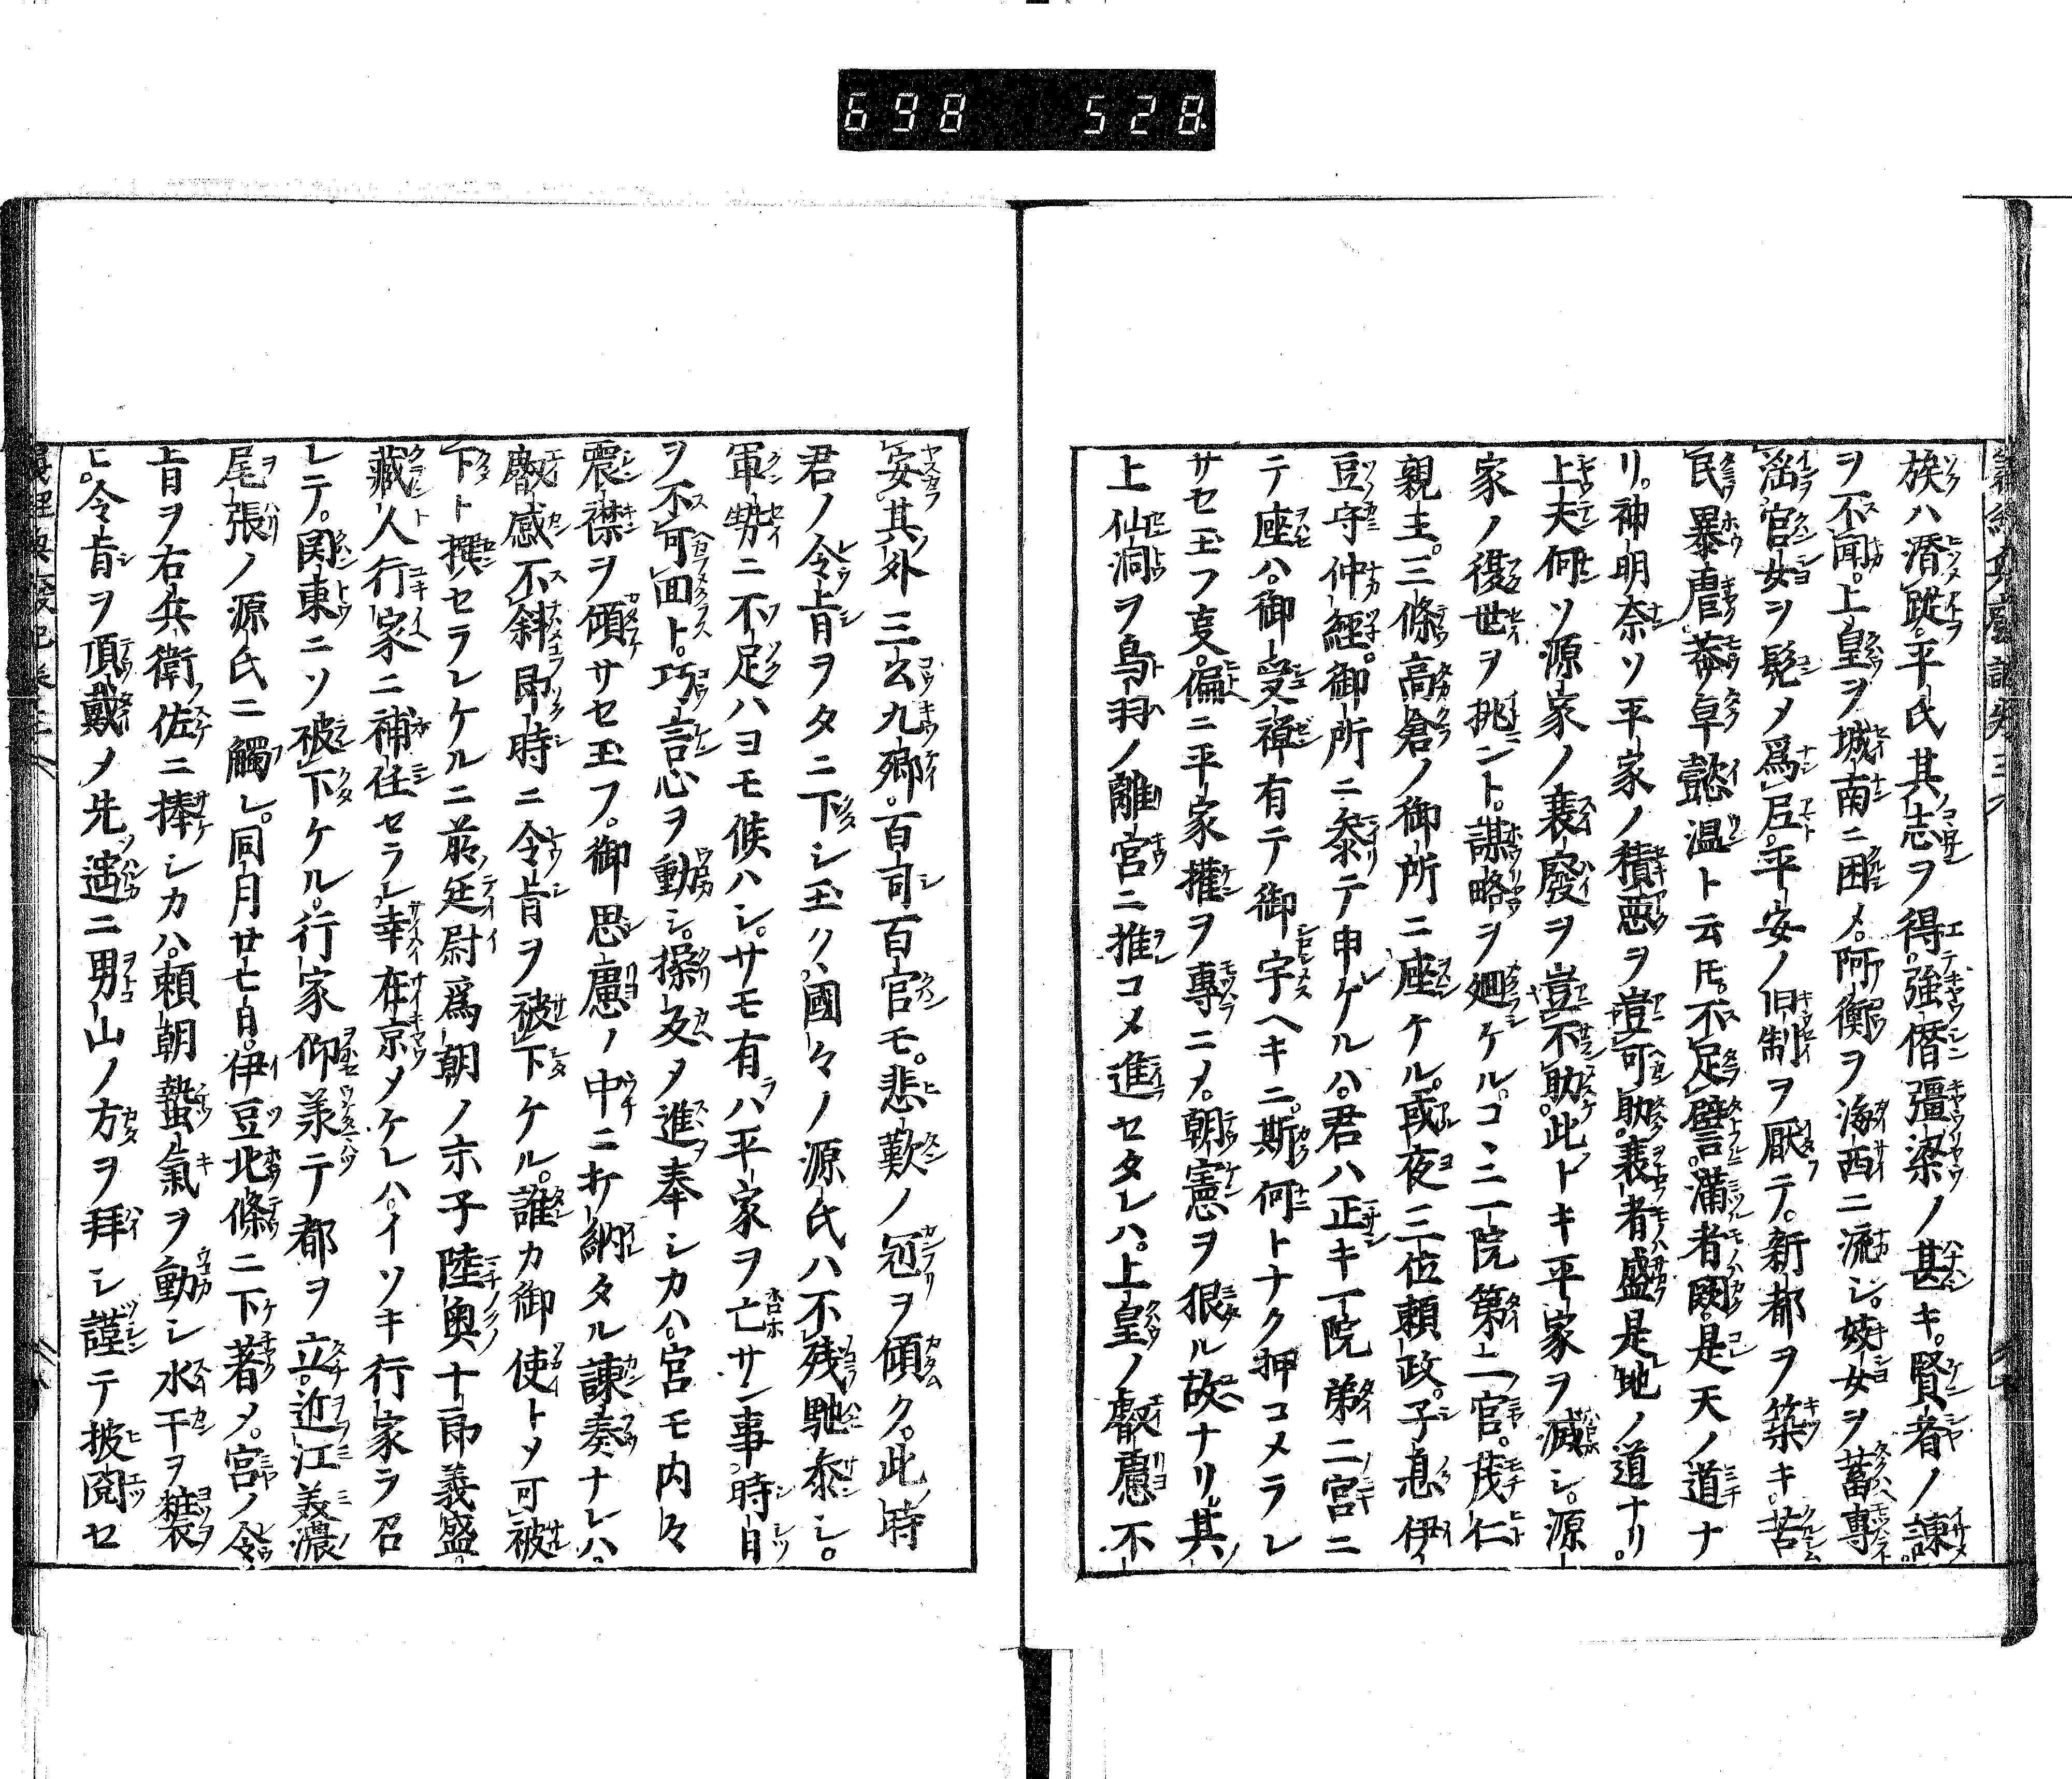 698 528
族ハ潜蹤。平氏其志ヲ得。強僭彊梁ノ甚キ。賢者ノ諫
ヲ不聞。上皇ヲ城南ニ困メ。阿衡ヲ海西ニ流シ。妓女ヲ蓄専
淫官女ヲ髡メ爲尼。平安ノ旧制ヲ厭テ。新都ヲ築キ。苦
民暴虐莽卓懿温ト云𪜈。不足譬。満者闕。是天ノ道ナ
リ。神明奈ソ平家ノ積惡ヲ豈可助。衰者盛是地ノ道ナリ。
上夫何ソ源家ノ衰廢ヲ豈不助。此トキ平家ヲ滅シ。源
家ノ復世ヲ挑ント。謀略ヲ廻ケル。コヽニ一院第二宮。茂仁
親王。三條高倉ノ御所ニ座ケル。或夜三位頼政。子息伊
豆守仲經。御所ニ参テ申ケルハ。君ハ正キ一院第二宮ニ
テ座ハ。御受禅有テ御宇ヘキニ。斯何トナク押コメラレ
サセ玉フ叓。偏ニ平家権ヲ專ニメ。朝憲ヲ狠ル故ナリ。其
上仙洞ヲ鳥羽ノ離宮ニ推コメ進セタレハ。上皇ノ叡慮不
安。其外三公九卿。百司百官モ。悲歎ノ冠ヲ傾ク。此時
君ノ令旨ヲタニ下シ玉ハヽ、國々ノ源氏ハ不残馳参シ。
軍勢ニ不足ハヨモ候ハシ。サモ有ハ平家ヲ亡サン事。時日
ヲ不可回ト。巧言心ヲ動シ。操反メ進奉シカハ。宮モ内々
震襟ヲ傾サセ玉フ。御思慮ノ中ニ折納タル諫奏ナレハ。
叡感不斜即時ニ令旨ヲ被下ケル。誰カ御使トメ可被
下ト撰セラレケルニ前廷尉爲朝ノ末子陸奥十郎義盛
藏人行家ニ補任セラレ幸在京メケレハ。イソキ行家ヲ召
レテ。関東ニソ被下ケル。行家仰羕テ都ヲ立。近江美濃
尾張ノ源氏ニ觸レ。同月廿七日。伊豆北條ニ下著メ。宮ノ令
旨ヲ右兵衛佐ニ捧シカハ。頼朝蟄氣ヲ動シ水干ヲ裝
ヒ。令旨ヲ頂戴メ先遙ニ男山ノ方ヲ拜シ謹テ披閲セ